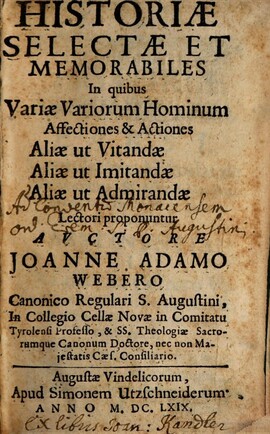 HISTORIÆ
SELECTÆ ET
MEMORABILES
In quibus
Variæ Variorum Hominum
Affectiones & Actiones
Aliæ ut Vitandæ
Aliæ ut Imitandæ
Aliæ ut Admirandæ
Ad Conventum Monacensem
Lectori proponuntur
ord. Erem. S. P. Augustini
AVCTORE
JOANNE ADAMO
WEBERO
Canonico Regulari S. Augustini,
In Collegio Cellæ Novæ in Comitatu
Tyrolensi Professo, & SS. Theologiæ Sacro-
rumque Canonum Doctore, nec non Ma-
jestatis Cæs. Consiliario.
Augustæ Vindelicorum,
Apud Simonem Utzschneiderum
ANNO M. DC. LXIX.
Ex libris Joan: Kandler